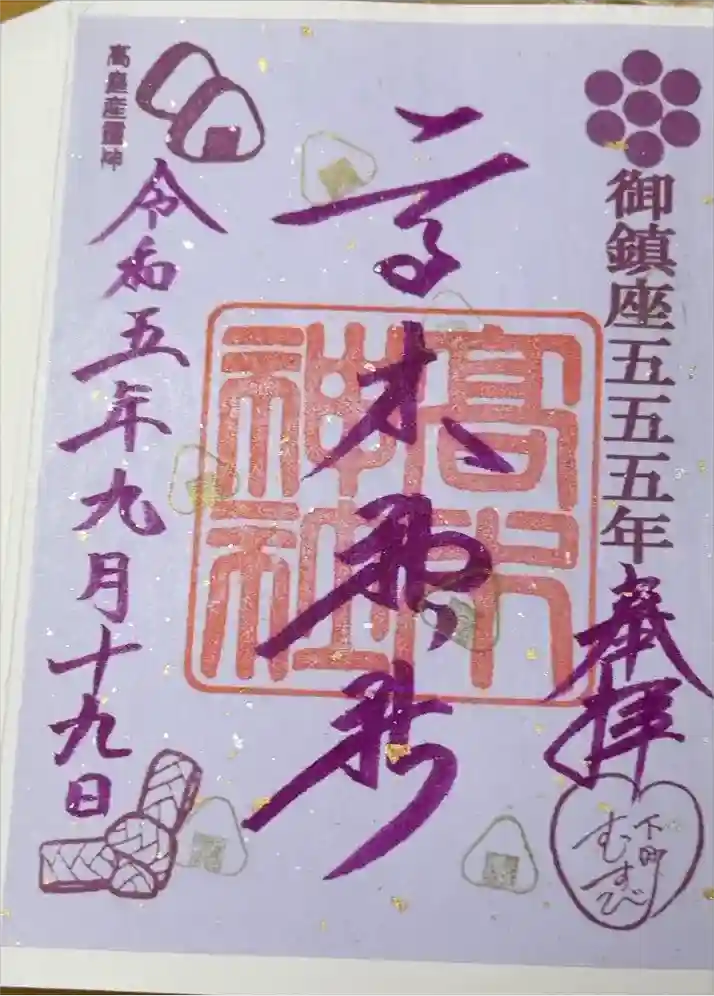 御鎮座五五五年
奉拝
下町
むすび
高木神社
高木神社
令和五年九月十九日
高皇産霊神